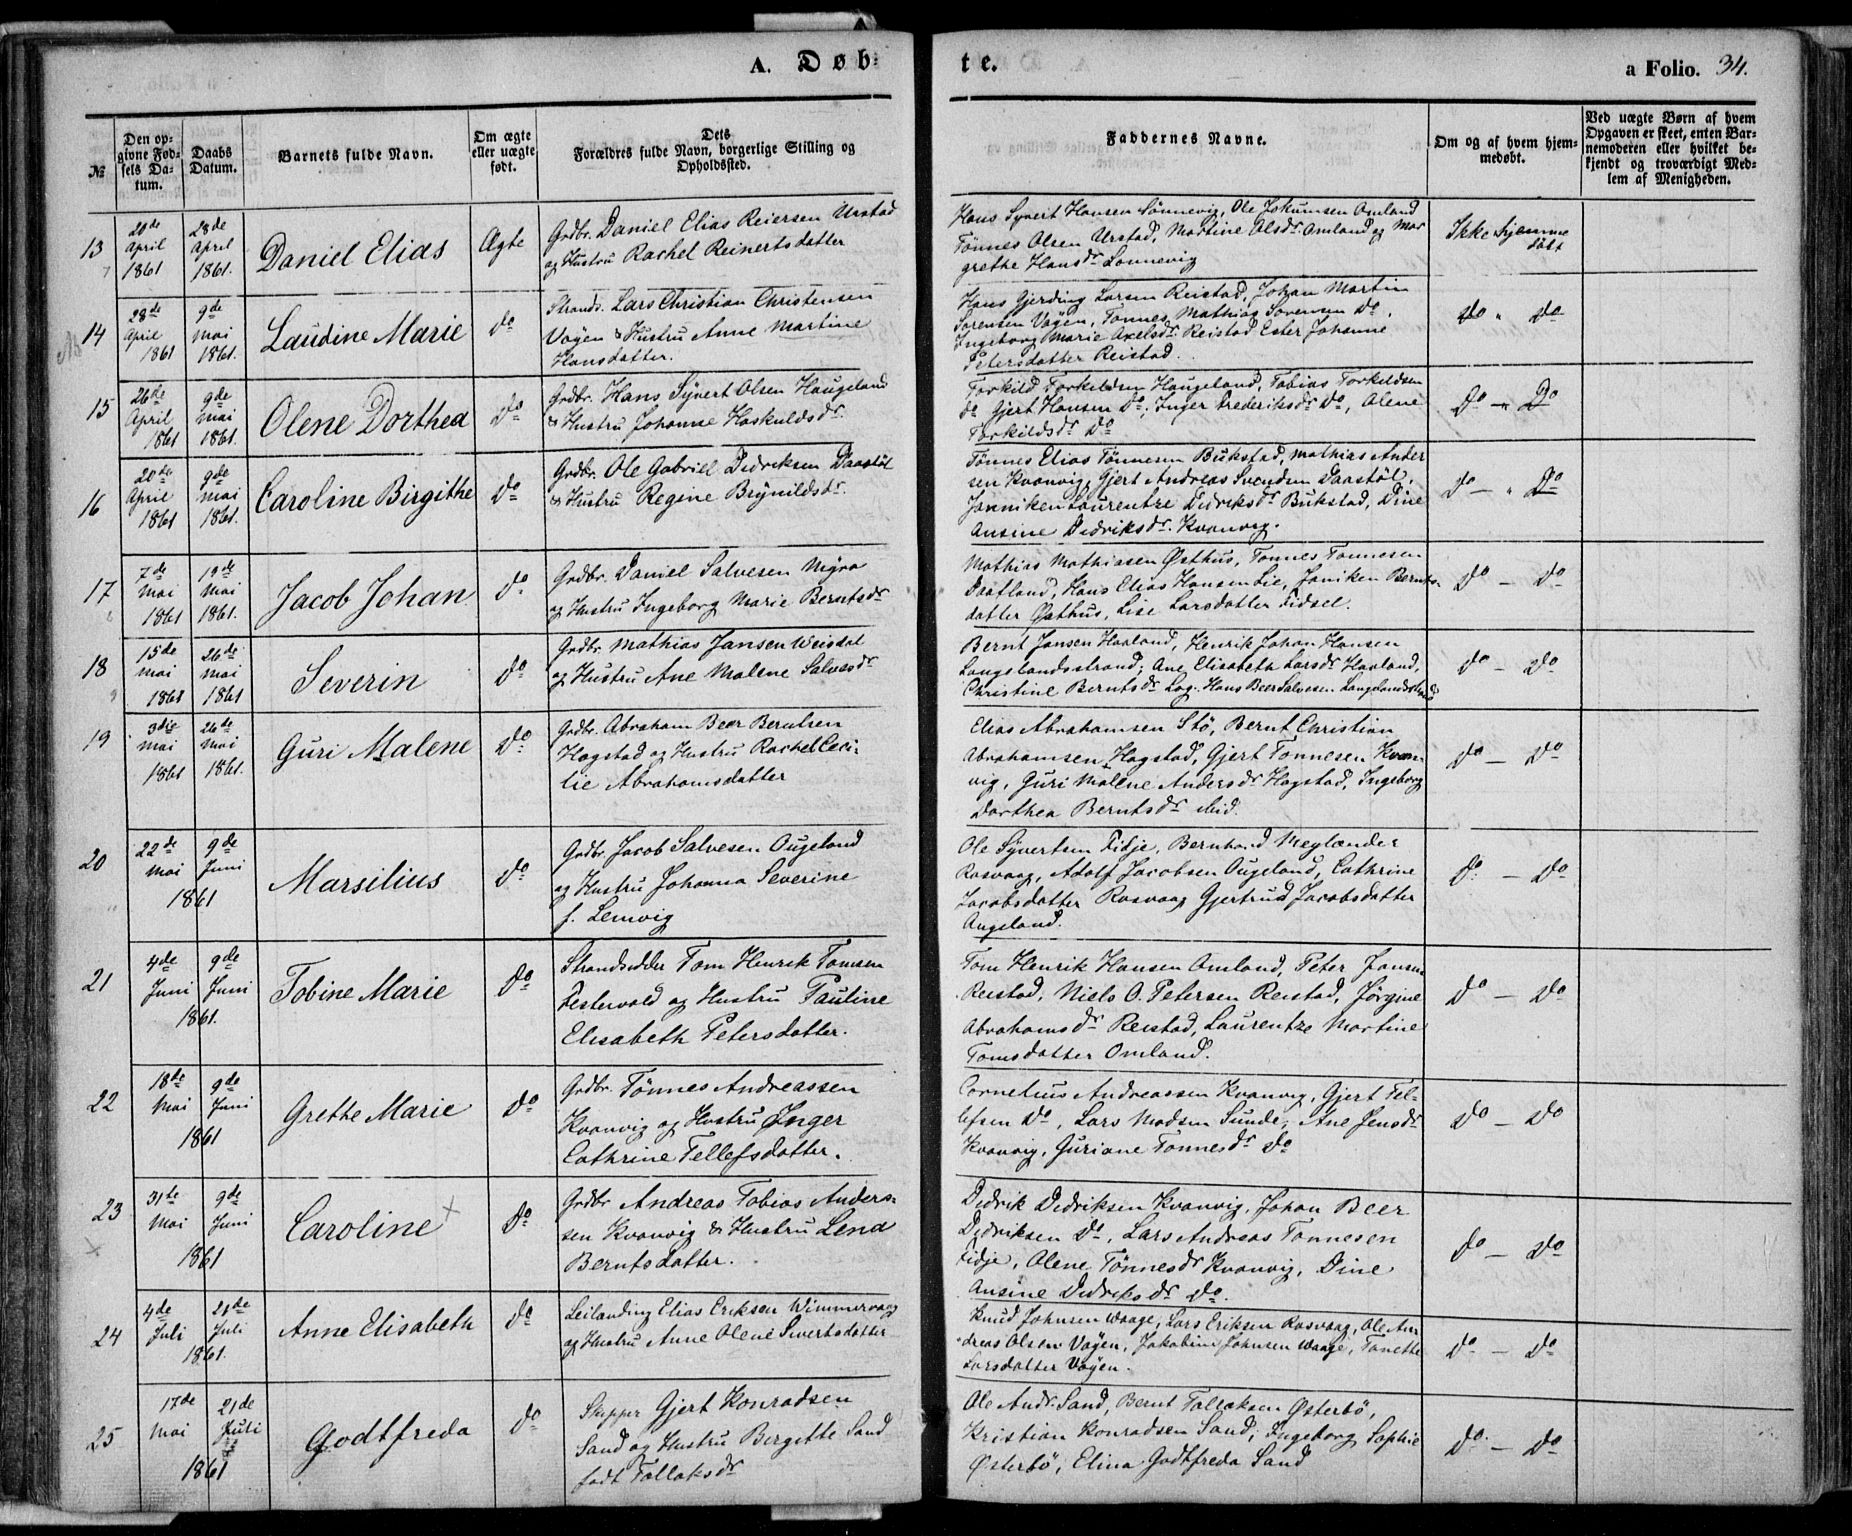 A. Døb-
te.
a Folio. 34.
№
Den op-
givne Fød-
sels Da-
tum.
Daabs
Datum.
Barnets fulde Navn.
Om ægte
eller uægte
født.
Dets
Forældres fulde Navn, borgerlige Stilling og
Opholdssted.
Faddernes Navne.
Om og af hvem hjem-
medøbt.
Ved uægte Børn af hvem
Opgaven er skeet, enten Bar-
nemoderen eller hvilket be-
kjendt og troværdigt Med-
lem af Menigheden.
13
April
1861
28de
April
1861.
Daniel Elias
Ægte
Grdbr. Daniel Elias Reiersen Urstad
og Hustru Rachel Reinertsdatter
Hans Syvert Hansen Sønnevig, Ole Jokumsen Omland
Tönnes Olsen Urstad, Martine Olsdr. Omland og Mar
grethe Hansdr. Lonnevig
Ikke hjemme
døbt
14
28de
April
1861
9de
Mai
1861.
Laudine Marie
do
Strands. Lars Christian Christensen
Vågen & Hustru Anne Martine
Hansdatter.
Hans Gjerding Larsen Reistad, Johan Martin
Sorensen Vågen, Tönnes Mathias Sorensen Do,
Ingeborg Marie Axelsdr. Reistad Ester Johanne
Petersdatter Reistad.
do " do
15
26de
April
1861
9de
Mai
1861.
Olene Dorthea
Do
Grdbr. Hans Syvert Olsen Haugeland
& Hustru Johanne Haskuldsdr.
Torkild Torkildsen Haugeland, Tobias Torkildsen
do Gjert Hansen Do, Inger Frederiksdr. Do, Olene
Torkildsdr. Do
Do " Do
16
20de
April
1861
9de
Mai
1861.
Caroline Birgithe
Do
Grdbr. Ole Gabriel Didriksen Daastøl
& Hustru Regine Brynildsdr.
Tönnes Elias Tönnesen Bukstad, Mathias Ander
sen Kvanvig, Gjert Andreas Svendsen Daastøl,
Janniken Laurentze Didriksdr. Bukstad, Dine
Ansine Didriksdr. Kvanvig.
do — " Do
17
7de
Mai
1861
19de
Mai
1861.
Jacob Johan
do
Grdbr. Daniel Salvesen Myra
og Hustru Ingeborg Marie Berntsdr.
Mathias Mathiasen Østhus, Tönnes Tönnesen
Hans Elias Hansen Lie, Janiken Bernts-
datter Østhus, Lise Larsdatter Fidsel.
do — do
18
15de
Mai
1861
26de
Mai
1861
Severin
do
Grdbr. Mathias Jansen
og Hustru Ane Malene Salvesdr.
Bernt Jansen Haaland, Henrik Johan Hansen
Langelandsstrand; Ane Elisabeth Larsdr. Haaland,
Christine Berntsdr. Hans Beer Salvesen
do — do
19
3die
Mai
1861
26de
Mai
1861.
Guri Malene
Do
Grdbr. Abraham Beer Berntsen
Hagstad og Hustru Rachel Ceci-
lie Abrahamsdatter
Elias Abrahamsen Stö, Bernt Christian
Abrahamsen Hagstad, Gjert Tönnesen Kvan-
vig, Guri Malene Andersdr. Hagstad, Ingeborg
Dorthea Berntsdr. ibid.
do — do
20
22de
Mai
9de
Juni
1861
Marsilius
do
Grdbr. Jacob Salvesen Ougeland
og Hustru Johanna Severine
f. Lemvig
Ole Syvertsen Fidje, Bernhard Meglænder
Rasvaag, Adolf Jacobsen Ougeland, Cathrine
Jacobsdatter Rasvaag Gjertrud Jacobsdatter
Augeland.
do — do
21
4de
Juni
9de
Juni
1861.
Tobine Marie
do
Strandsidder Tom Henrik Tomsen
Festervold og Hustru Pauline
Elisabeth Petersdatter.
Tom Henrik Hansen Omland, Peter Jansen
Reistad, Niels O. Petersen Reistad, Jörgine
Abrahamsdr. Reistad, Laurentze Martine
Tomsdatter Omland.
do — do
22
18de
Mai
9de
Juni
1861
Grethe Marie
do
Grdbr. Tönnes Andreassen
Kvanvig og Hustru Inger
Cathrine Tellefsdatter.
Cornelius Andreassen Kvanvig, Gjert Tel-
lefsen Do, Lars Madsen Sunde, Ane Jensdr.
Kvanvig, Guriane Tönnesdr. do
do — do
23
31te
Mai
9de
Juni
1861
Caroline
Do
Grdbr Andreas Tobias Anders-
sen Kvanvig & Hustru Lena
Berntsdatter.
Didrik Didriksen Kvanvig, Johan Beer
Didriksen Do, Lars Andreas Tönnesen
Fidje, Olene Tönnesdr. Kvanvig, Dine
Ansine Didriksdr. do.
do — do
24
4de
Juli
21de
Juli
1861.
Anne Elisabeth
do
Leilænding Elias Eriksen Wimmervaag
og Hustru Anne Olene Sivertsdatter
Knud Johnsen Waage, Lars Eriksen Rasvaag, Ole An-
dreas Olsen Vågen, Jakobine Johnsen Waage, Tanette
Larsdatter Vågen.
do — do
25
17de
Mai
21de
Juli
1861
Godtfreda
do
Skipper Gjert Konradsen
Sand og Hustru Bergitte Sand
født Tallaksdr
Ole Andr. Sand, Bernt Tallaksen Østerbö,
Kristian Konradsen Sand, Ingeborg Sophie
Østerbö, Elina Godtfreda Sand
do — do